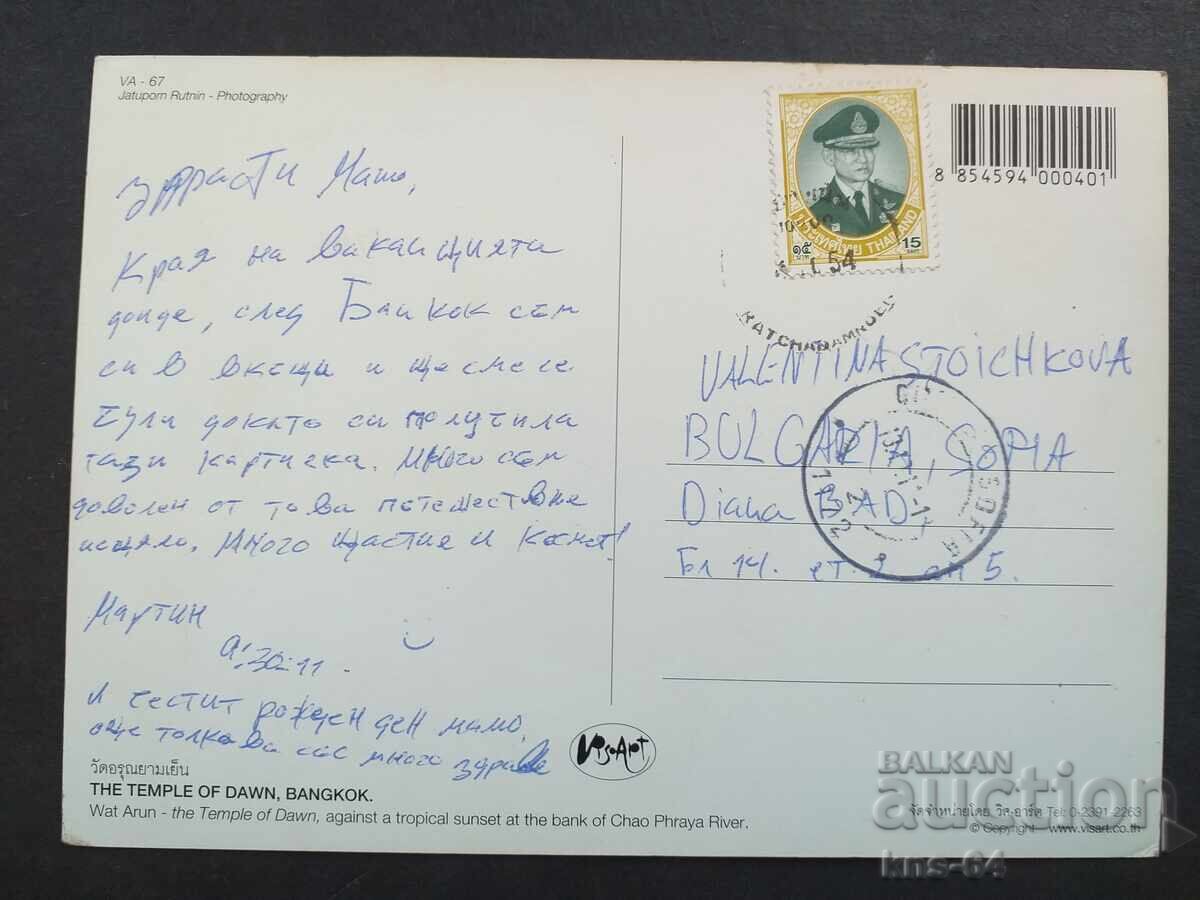 VA - 67
Jatuporn Rutnin - Photography
Здрасти Мамо,
Края на ваканцията
дойде, след Банкок съм
си в вкъщи и ще сме се
чули докато си получила
тази картичка. Много съм
доволен от това пътешествие
изцяло. Много щастие и късмет!
Мартин
И честит рожден ден мамо,
още толкова със много здраве
วัดอรุณยามเย็น
THE TEMPLE OF DAWN, BANGKOK.
Wat Arun - the Temple of Dawn, against a tropical sunset at the bank of Chao Phraya River.
VisArt
ประเทศไทย THAILAND
๑๕ บาท 15
54
8 854594 000401
VALENTINA STOICHKOVA
BULGARIA, SOFIA
Diana BAD
Бл 14. ет. 2 ап 5.
SOFIA
จัดจำหน่ายโดย วิส-อาร์ต Tel: 0-2391-2263
© Copyright www.visart.co.th
BALKAN
auction
kns-64